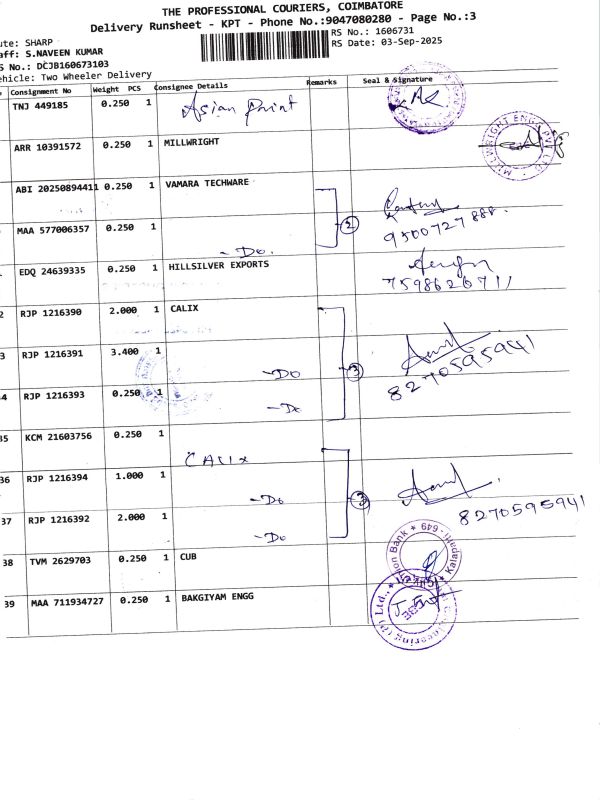 THE PROFESSIONAL COURIERS, COIMBATORE
Delivery Runsheet - KPT - Phone No.:9047080280 - Page No.:3
ute: SHARP
RS No.: 1606731
aff: S.NAVEEN KUMAR
RS Date: 03-Sep-2025
S No.: DCJB160673103
ehicle: Two Wheeler Delivery
Consignment No Weight PCS Consignee Details Remarks Seal & Signature
TNJ 449185 0.250 1 Asian Paint
ARR 10391572 0.250 1 MILLWRIGHT
MILLWRIGHT ENGG
ABI 20250894411 0.250 1 VAMARA TECHWARE
MAA 577006357 0.250 1 - Do. 2
9500727888.
EDQ 24639335 0.250 1 HILLSILVER EXPORTS
7598626711
2 RJP 1216390 2.000 1 CALIX
3 RJP 1216391 3.400 1 - Do 3
8270595941
4 RJP 1216393 0.250 1 - Do
35 KCM 21603756 0.250 1 CALIX
36 RJP 1216394 1.000 1 - Do 3
8270595941
37 RJP 1216392 2.000 1 - Do
38 TVM 2629703 0.250 1 CUB
Union Bank * 649 - Kaladapatti
39 MAA 711934727 0.250 1 BAKGIYAM ENGG
Engineering (P) Ltd.,